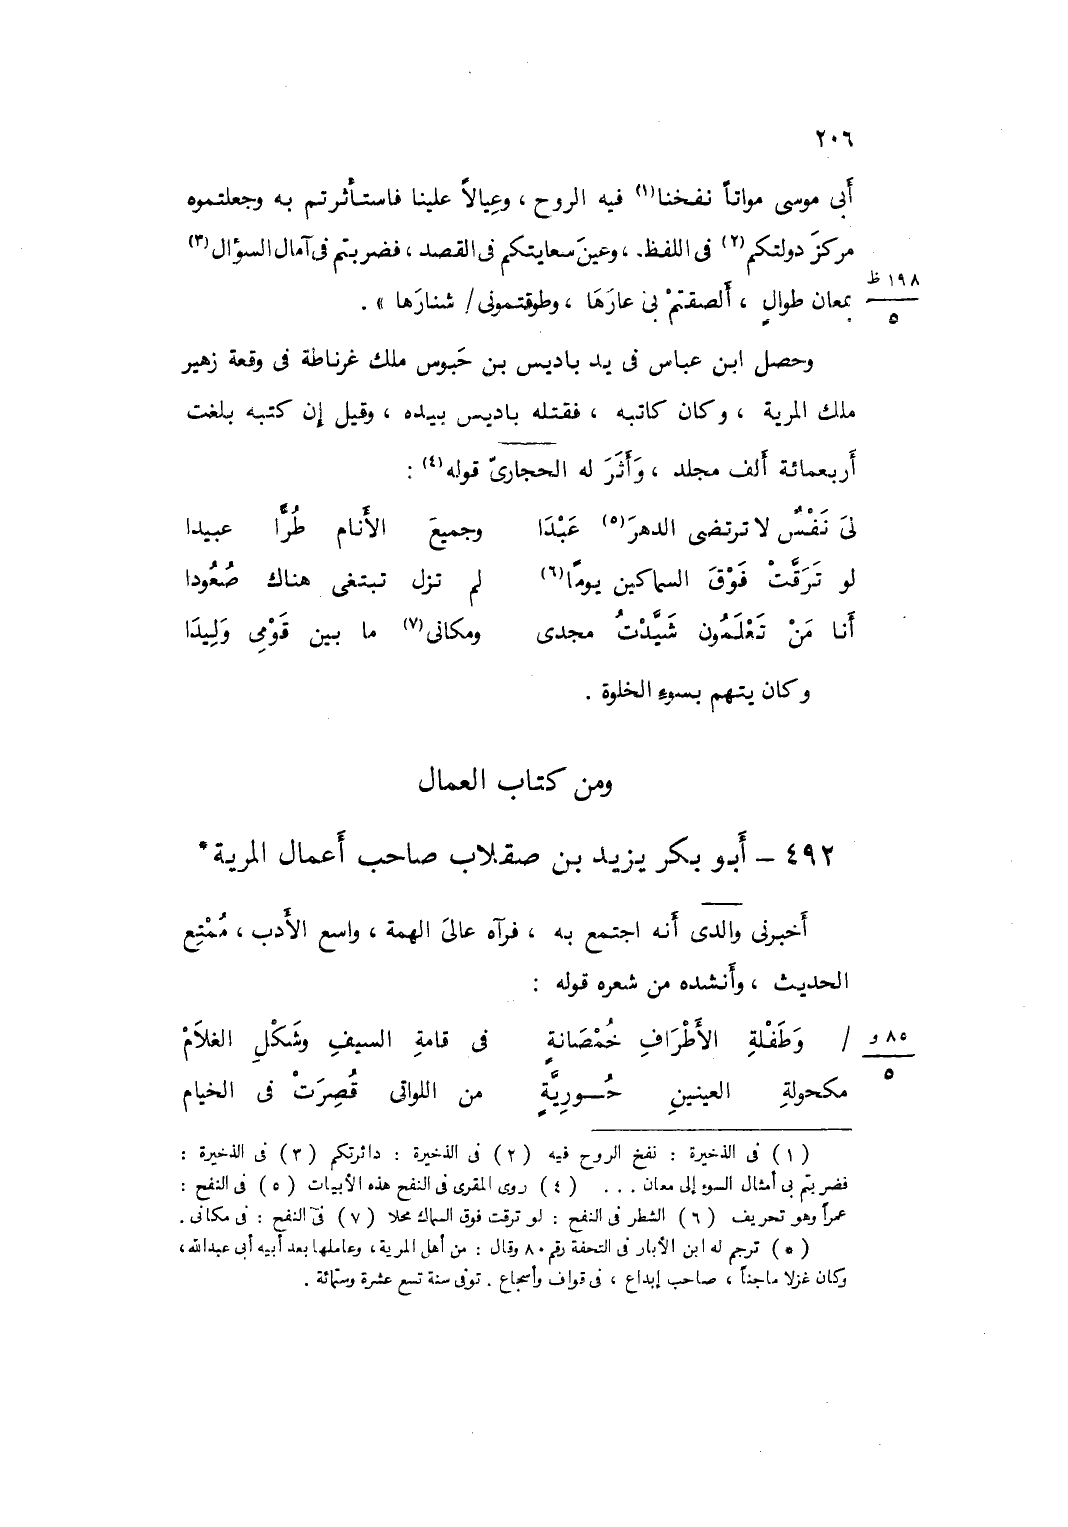 ٢٠٦
أَبى موسى مواتاً نفخنا(١) فيه الروح ، وعِيالاً علينا فاستأثرتم به وجعلتموه
مركزَ دولتكم(٢) فى اللفظ ، وعينَ سعايتكم فى القصد ، فضربتم فى آمال السؤال(٣)
بمعان طوالٍ ، أَلصقتمْ بىَ عارَهَا ، وطوقتمونى/ شنارَها » .
١٩٨ ظ
٥
وحصل ابن عباس فى يد باديس بن حَبوس ملك غرناطة فى وقعة زهير
ملك المرية ، وكان كاتبه ، فقتله باديس بيده ، وقيل إن كتبه بلغت
أَربعمائة أَلف مجلد ، وَأَثَرَ له الحجارىّ قوله(٤) :
لىَ نَفْسٌ لا ترتضى الدهرَ(٥) عَبْدَا وجميعَ الأَنام طُرًّا عبيدا
لو تَرَقَّتْ فَوْقَ السماكين يومًا(٦) لم تزل تبتغى هناك صُعُودا
أَنا مَنْ تَعْلَمُون شَيَّدْتُ مجدى ومكانى(٧) ما بين قَوْمِى وَلِيدَا
وكان يتهم بسوء الخلوة .
ومن كتاب العمال
٤٩٢ – أَبو بكر يزيد بن صقلاب صاحب أَعمال المرية*
أَخبرنى والدى أَنه اجتمع به ، فرآه عالىَ الهمة ، واسع الأَدب ، مُمْتِع
الحديث ، وأَنشده من شعره قوله :
/ وَطَفْلةِ الأَطْرَافِ خُمْصَانةٍ فى قامةِ السيفِ وشَكْلِ الغلاَمْ
٨٥ و
٥
مكحولةِ العينينِ حُــورِيَّةٍ من اللواتى قُصِرَتْ فى الخيام
(١) فى الذخيرة : نفخ الروح فيه (٢) فى الذخيرة : دائرتكم (٣) فى الذخيرة :
فضربتم بى أمثال السوء إلى معان . . . (٤) روى المقرى فى النفح هذه الأبيات (٥) فى النفح :
عمراً وهو تحريف (٦) الشطر فى النفح : لو ترقت فوق السماك محلا (٧) فى النفح : فى مكانى .
(*) ترجم له ابن الأبار فى التحفة رقم ٨٠ وقال : من أهل المرية ، وعاملها بعد أبيه أبى عبدالله ،
وكان غزلا ماجناً ، صاحب إبداع ، فى قواف وأسجاع . توفى سنة تسع عشرة وستمائة .